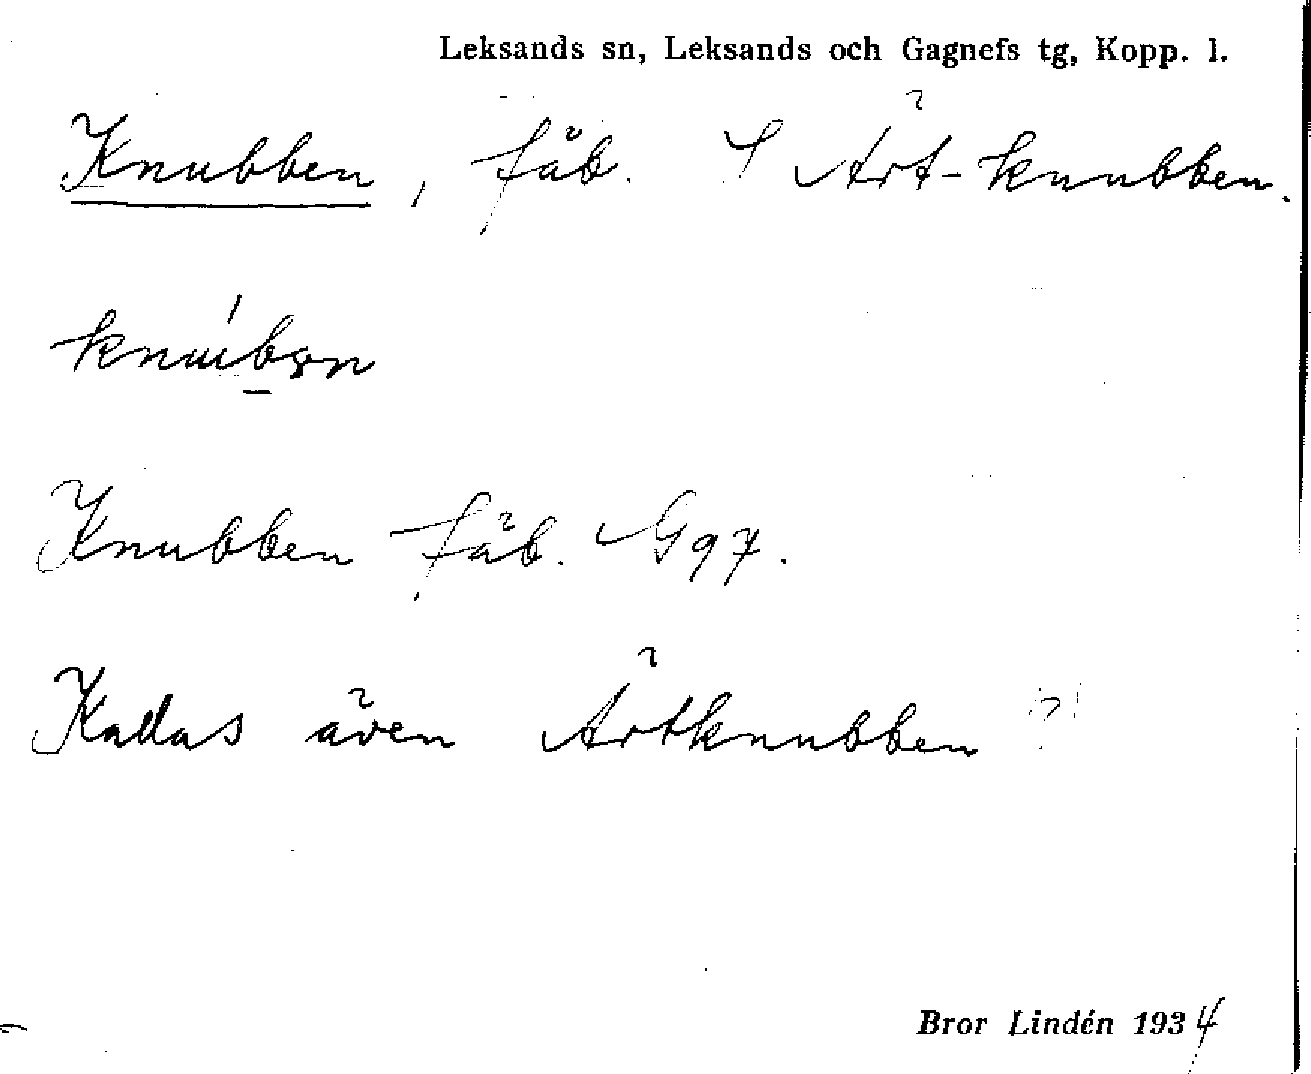 Leksands sn, Leksands och Gagnefs tg, Kopp. l.
Knubben, fäb. Ärt-knubben.
Knubben fäb. G97.
Kallas även Ärtknubben ?
Bror Lindén 1934